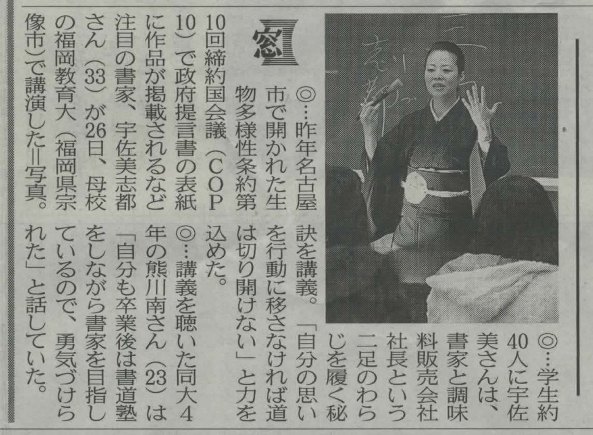 窓
◎…昨年名古屋
市で開かれた生
物多様性条約第
10回締約国会議（COP
10）で政府提言書の表紙
に作品が掲載されるなど
注目の書家、宇佐美志都
さん（33）が26日、母校
の福岡教育大（福岡県宗
像市）で講演した＝写真。
◎…学生約
40人に宇佐
美さんは、
書家と調味
料販売会社
社長という
二足のわら
じを履く秘
訣を講義。「自分の思い
を行動に移さなければ道
は切り開けない」と力を
込めた。
◎…講義を聴いた同大4
年の熊川南さん（23）は
「自分も卒業後は書道塾
をしながら書家を目指し
ているので、勇気づけら
れた」と話していた。